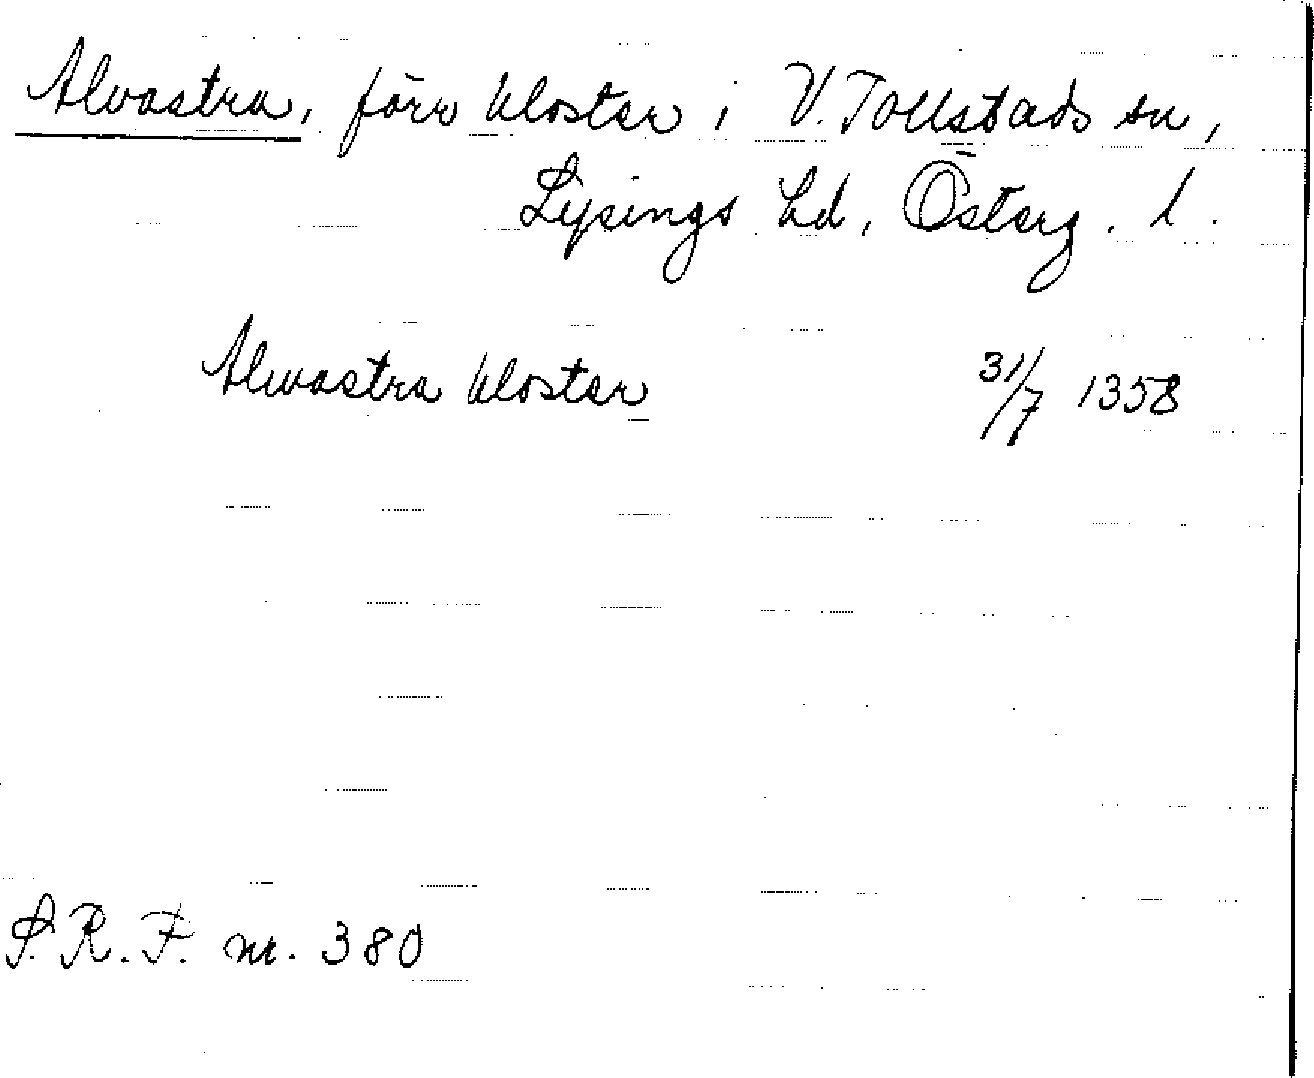 Alvastra, förr kloster i V. Tollstads sn,
Lysings hd, Österg. l.
Alwastra kloster 31/7 1358
S.R.P. nr. 380